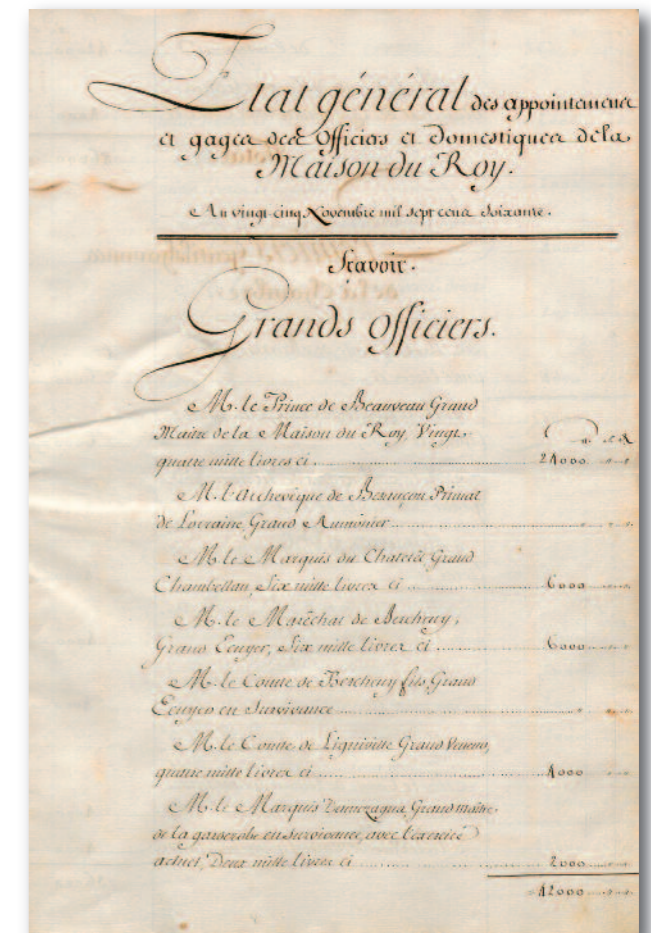 Etat général des appointemens
et gages des Officiers et Domestiques de la
Maison du Roy.
Au vingt cinq Novembre mil sept cens Soixante.
Scavoir.
Grands officiers.
M. le Prince de Beauveau Grand
Maitre de la Maison du Roy, Vingt
quatre mille livres ci 24000
M. l'Archevêque de Besançon Primat
de Lorraine, Grand Aumônier
M. le Marquis du Chatelêt Grand
Chambellan, Six mille livres ci 6000
M. le Maréchal de Bercheny,
Grand Ecuyer, Six mille livres ci 6000
M. le Comte de Bercheny fils Grand
Ecuyer en Survivance
M. le Comte de Ligniville Grand Veneur,
quatre mille livres ci 4000
M. le Marquis Grand maître
de la garderobe en survivance, avec l'exercice
actuel, Deux mille livres ci 2000
42000